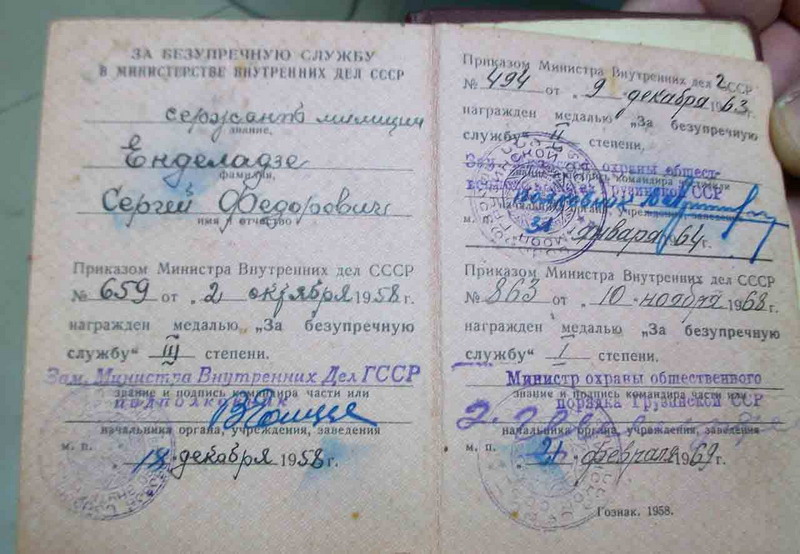 ЗА БЕЗУПРЕЧНУЮ СЛУЖБУ
В МИНИСТЕРСТВЕ ВНУТРЕННИХ ДЕЛ СССР
сержант милиции
звание,
Енделадзе
фамилия,
Сергей Федорович
имя и отчество
Приказом Министра Внутренних дел СССР
№ 659 от „2 октября 1958 г.
награжден медалью „За безупречную
службу“ III степени.
Зам. Министра Внутренних Дел ГССР
звание и подпись командира части или
подполковник
начальника органа, учреждения, заведения
м. п. „18 декабря 1958 г.
Приказом Министра Внутренних дел СССР
№ 494 от „9 декабря 1963 г.
награжден медалью „За безупречную
службу“ II степени.
Зам. охраны обществ
звание и подпись командира части или
Грузинской ССР
полковник
начальника органа, учреждения, заведения
м. п. „31 января 64 г.
Приказом Министра Внутренних дел СССР
№ 863 от „10 ноября 1968 г.
награжден медалью „За безупречную
службу“ I степени.
Министр охраны общественного
звание и подпись командира части или
порядка Грузинской ССР
начальника органа, учреждения, заведения
м. п. „21 февраля 1969 г.
Гознак. 1958.